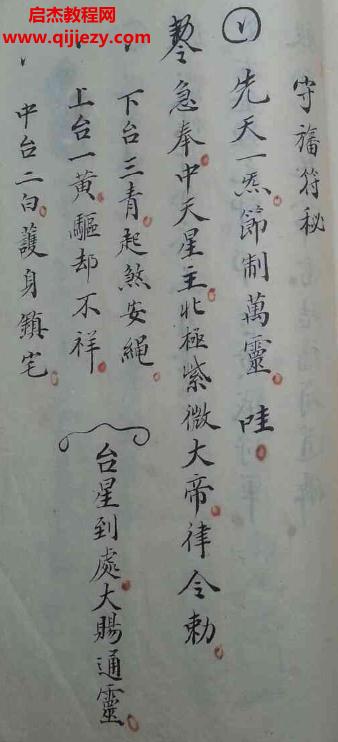 启杰教程网
www.qijiezy.com
守旛符秘
㈠
先天一炁。節制萬靈。哇。
急奉中天星主。北極紫微大帝律令勅。
下台三青。起煞安繩。
上台一黃。驅却不祥。
中台二白。護身鎮宅。
台星到處。大賜通靈。